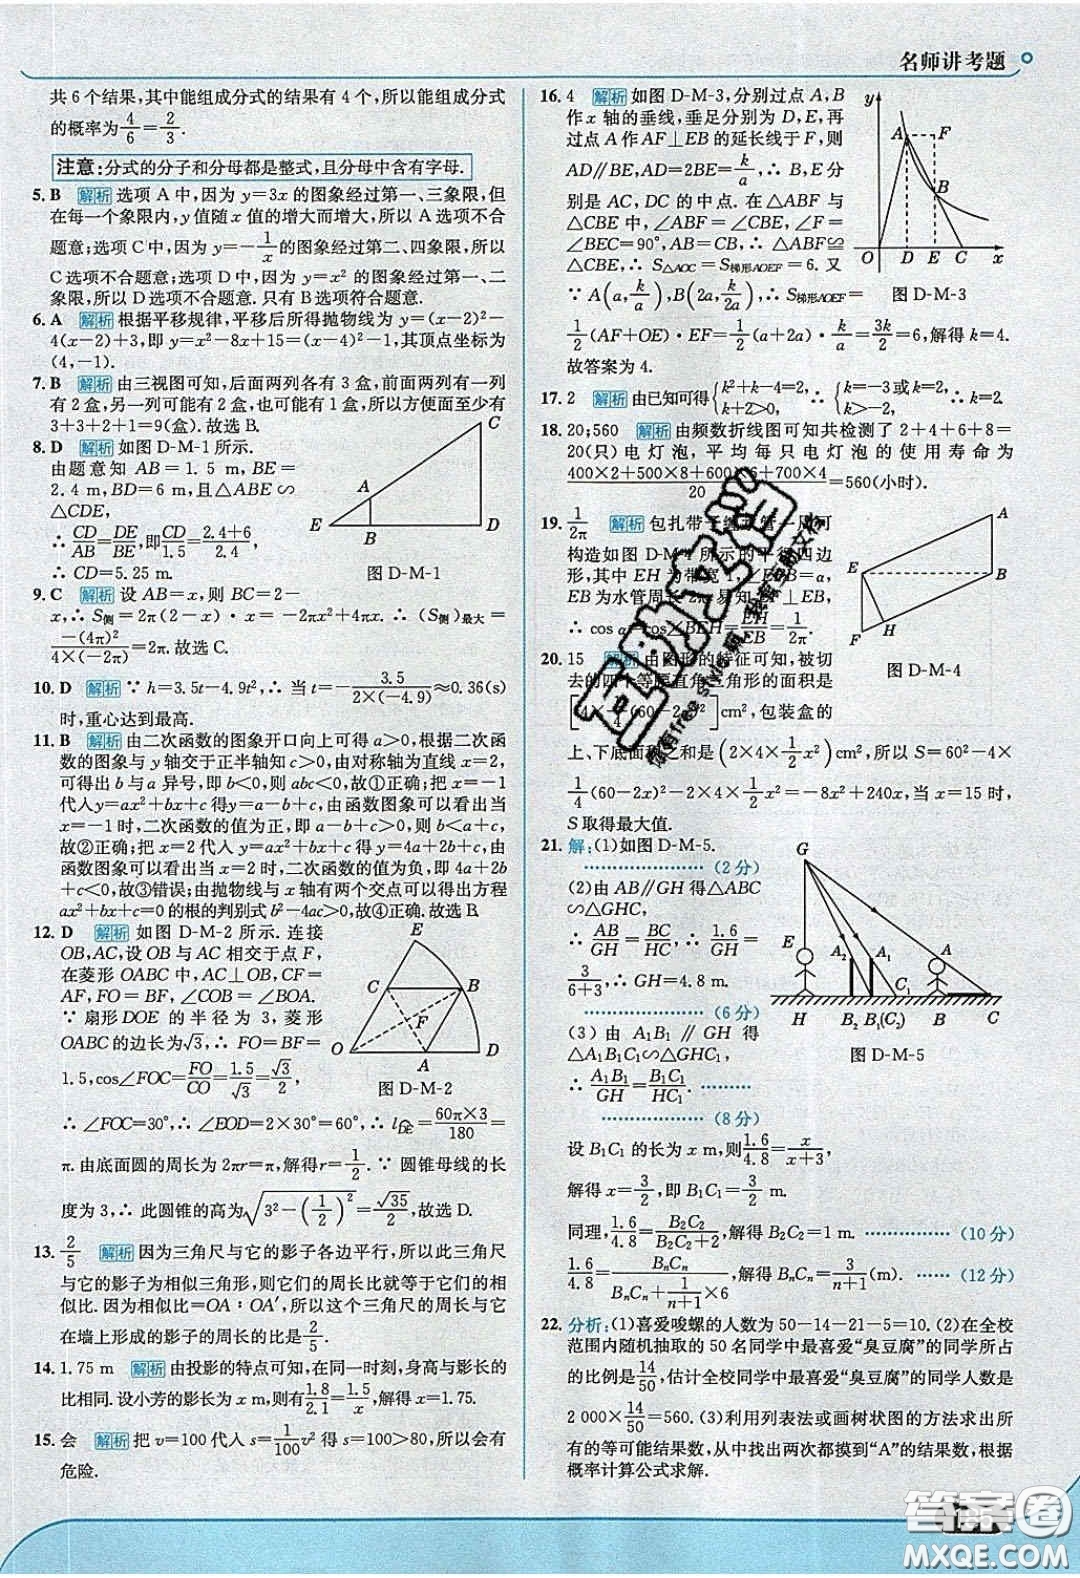 名师讲考题
共6个结果,其中能组成分式的结果有4个,所以能组成分式
的概率为4/6=2/3.
注意:分式的分子和分母都是整式,且分母中含有字母.
5. B 解析 选项A中,因为y=3x的图象经过第一、三象限,但
在每一个象限内,y值随x值的增大而增大,所以A选项不合
题意;选项C中,因为y=-1/x的图象经过第二、四象限,所以
C选项不合题意;选项D中,因为y=x²的图象经过第一、二
象限,所以D选项不合题意.只有B选项符合题意.
6. A 解析 根据平移规律,平移后所得抛物线为y=(x-2)²-
4(x-2)+3,即y=x²-8x+15=(x-4)²-1,其顶点坐标为
(4,-1).
7. B 解析 由三视图可知,后面两列各有3盒,前面两列有一列
有2盒,另一列可能有2盒,也可能有1盒,所以方便面至少有
3+3+2+1=9(盒).故选B.
8. D 解析 如图D-M-1所示.
由题意知AB=1.5 m,BE=
2.4 m,BD=6 m,且△ABE∽
△CDE,
∴CD/AB=DE/BE,即CD/1.5=(2.4+6)/2.4,
∴CD=5.25 m.
C
A
E
B
D
图D-M-1
9. C 解析 设AB=x,则BC=2-
x,∴S侧=2π(2-x)·x=-2πx²+4πx.∴(S侧)最大=
-(4π)²/(4×(-2π))=2π.故选C.
10. D 解析 ∵h=3.5t-4.9t²,∴当t=-3.5/(2×(-4.9))≈0.36(s)
时,重心达到最高.
11. B 解析 由二次函数的图象开口向上可得a>0,根据二次函
数的图象与y轴交于正半轴知c>0,由对称轴为直线x=2,
可得出b与a异号,即b<0,则abc<0,故①正确;把x=-1
代入y=ax²+bx+c得y=a-b+c,由函数图象可以看出当
x=-1时,二次函数的值为正,即a-b+c>0,则b<a+c,
故②正确;把x=2代入y=ax²+bx+c得y=4a+2b+c,由
函数图象可以看出当x=2时,二次函数的值为负,即4a+2b
+c<0,故③错误;由抛物线与x轴有两个交点可以得出方程
ax²+bx+c=0的根的判别式b²-4ac>0,故④正确.故选B.
12. D 解析 如图D-M-2所示.连接
OB,AC,设OB与AC相交于点F,
在菱形OABC中,AC⊥OB,CF=
AF,FO=BF,∠COB=∠BOA.
∵扇形DOE的半径为3,菱形
OABC的边长为√3,∴FO=BF=
1.5,cos∠FOC=FO/CO=1.5/√3=√3/2,
E
C
B
F
O
A
D
图D-M-2
∴∠FOC=30°,∴∠EOD=2×30°=60°,∴l=60π×3/180=
π.由底面圆的周长为2πr=π,解得r=1/2.∵圆锥母线的长
度为3,∴此圆锥的高为√(3²-(1/2)²)=√35/2,故选D.
13. 2/5 解析 因为三角尺与它的影子各边平行,所以此三角尺
与它的影子为相似三角形,则它们的周长比就等于它们的相
似比.因为相似比=OA∶OA′,所以这个三角尺的周长与它
在墙上形成的影子的周长的比是2/5.
14. 1.75 m 解析 由投影的特点可知,在同一时刻,身高与影长的
比相同.设小芳的影长为x m,则有1.8/2.1=1.5/x,解得x=1.75.
15. 会 解析 把v=100代入s=1/100v²得s=100>80,所以会有
危险.
16. 4 解析 如图D-M-3,分别过点A,B
作x轴的垂线,垂足分别为D,E,再
过点A作AF⊥EB的延长线于F,则
AD∥BE,AD=2BE=k/a,∴B,E分
别是AC,DC的中点.在△ABF与
△CBE中,∠ABF=∠CBE,∠F=
∠BEC=90°,AB=CB,∴△ABF≌
△CBE,∴S△AOC=S梯形AOEF=6.又
∵A(a,k/a),B(2a,k/2a),∴S梯形AOEF=
1/2(AF+OE)·EF=1/2(a+2a)·k/a=3k/2=6,解得k=4.
故答案为4.
y
A
F
B
O
D
E
C
x
图D-M-3
17. 2 解析 由已知可得{k²+k-4=2, k+2>0,∴{k=-3或k=2, k>-2,∴k=2.
18. 20;560 解析 由频数折线图可知共检测了2+4+6+8=
20(只)电灯泡,平均每只电灯泡的使用寿命为
(400×2+500×8+600×6+700×4)/20=560(小时).
19. 1/2π 解析 包扎带
构造如图D-M-4所示的平行四边
形,其中EH为带宽1,
EB为水管周长2π.易知
∴cos α=cos∠BEH=EH/EB=1/2π.
A
E
B
F
H
图D-M-4
20. 15 解析 由图形的特征可知,被切
去的四个等腰直角三角形的面积是
cm²,包装盒的
上、下底面积之和是(2×4×1/2x²)cm²,所以S=60²-4×
1/4(60-2x)²-2×4×1/2x²=-8x²+240x,当x=15时,
S取得最大值.
21. 解:(1)如图D-M-5.
(2分)
(2)由AB∥GH得△ABC
∽△GHC,
∴AB/GH=BC/HC,∴1.6/GH=
3/(6+3),∴GH=4.8 m.
(6分)
(3)由A₁B₁∥GH得
△A₁B₁C₁∽△GHC₁,
∴A₁B₁/GH=B₁C₁/HC₁.
(8分)
G
E
A₂
A₁
A
C₁
H
B₂
B₁(C₂)
B
C
图D-M-5
设B₁C₁的长为x m,则1.6/4.8=x/(x+3),
解得x=3/2,即B₁C₁=3/2 m.
同理,1.6/4.8=B₂C₂/(B₂C₂+2),解得B₂C₂=1 m.(10分)
1.6/4.8=BₙCₙ/(BₙCₙ+1/(n+1)×6),解得BₙCₙ=3/(n+1)(m).(12分)
22. 分析:(1)喜爱唆螺的人数为50-14-21-5=10.(2)在全校
范围内随机抽取的50名同学中最喜爱“臭豆腐”的同学所占
的比例是14/50,估计全校同学中最喜爱“臭豆腐”的同学人数是
2 000×14/50=560.(3)利用列表法或画树状图的方法求出所
有的等可能结果数,从中找出两次都摸到“A”的结果数,根据
概率计算公式求解.
答案圈
MXQE.COM